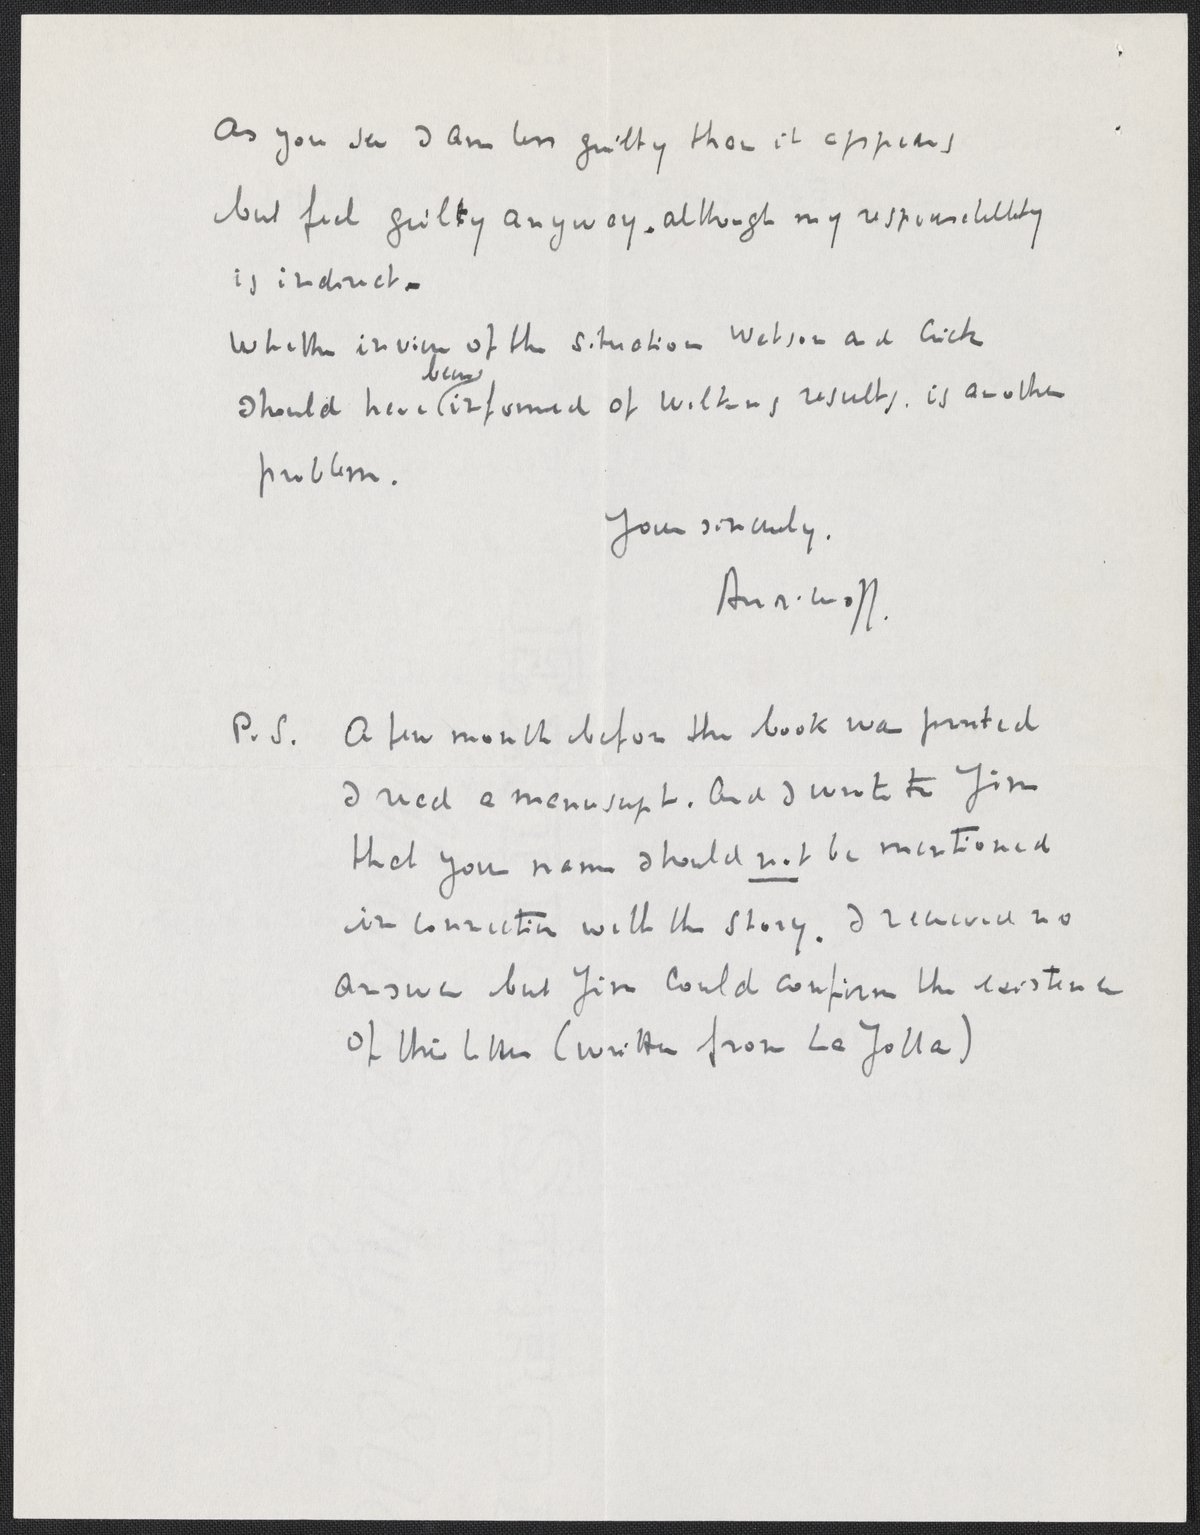 As you see I am less guilty than it appears
but feel guilty anyway. although my responsibility
is indirect.
Whether in view of the situation Watson and Crick
should have been informed of Wilkins results. is another
problem.
Your sincerely.
P.S. A few month before the book was printed
I read a manuscript. And I wrote to Jim
that your name should not be mentioned
in connection with the story. I received no
answer but Jim could confirm the existence
of this letter (written from La Jolla)